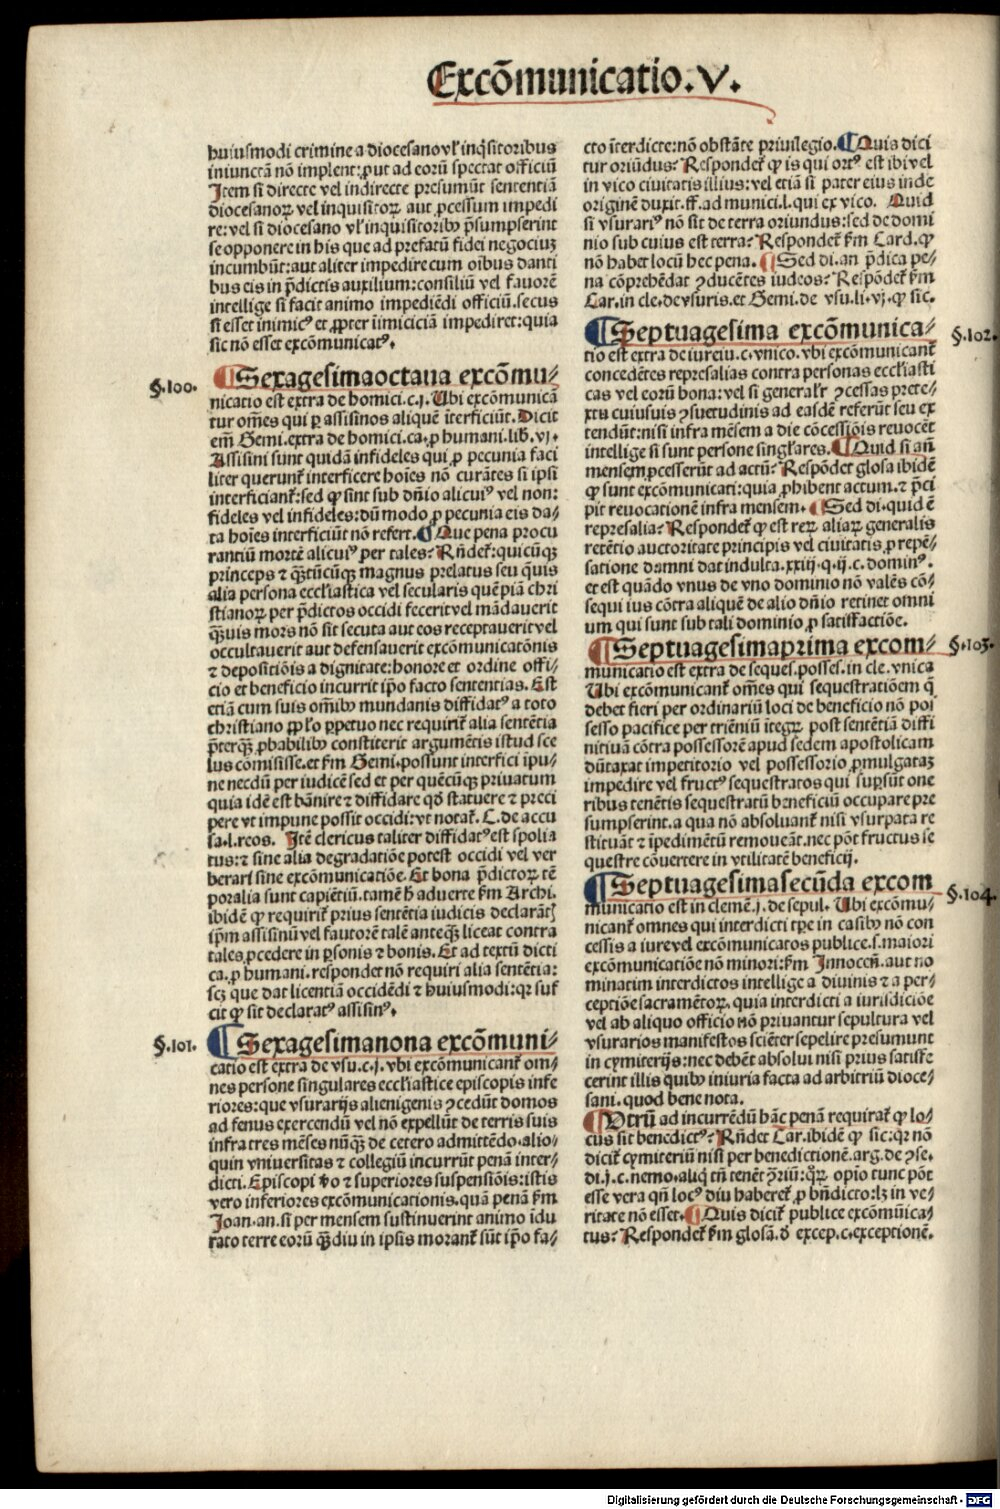 Excōmunicatio.V.
huiusmodi crimine a diocesano vl' inq̇sitoribus
iniunctā nō implent: ꝓut ad eorū spectat officiū
Item si directe vel indirecte presumūt sententiā
diocesanoꝝ vel inquisitoꝝ aut ꝓcessum impedi
re: vel si diocesano vl' inquisitoribꝰ p̄sumpserint
se opponere in his que ad prefatū fidei negociuꝫ
incumbūt: aut aliter impedire cum oībus danti
bus eis in p̄dictis auxilium: consiliū vel fauorē
intellige si facit animo impediēdi officiū. secus
si esset inimicꝰ et ꝓpter īimiciciā impediret: quia
sic nō esset excōmunicatꝰ.
§.100.
¶ Sexagesimaoctaua excōmu⸗
nicatio est extra de homici. c.j. Ubi excōmunicā
tur om̄es qui ꝑ assisinos aliquē īterficiūt. Dicit
em̄ Gemi. extra de homici. ca. ꝓ humani. lib. vj.
Assisini sunt quidā infideles qui ꝓ pecunia faci
liter querunt interficere hoīes nō curātes si ipsi
interficiant: sed ꝙ sint sub dn̄io alicuiꝰ vel non:
fideles vel infideles: dū modo ꝓ pecunia eis da⸗
ta hoīes interficiūt nō refert. ¶ Que pena procu
rantiū mortē alicuiꝰ per tales? Rn̄det: quicūqꝫ
princeps ⁊ q̄tūcūqꝫ magnus prelatus seu q̄uis
alia persona eccl'iastica vel secularis quēpiā chri
stianoꝝ per p̄dictos occidi fecerit vel mādauerit
q̄ꝫuis mors nō sit secuta aut eos receptauerit vel
occultauerit aut defensauerit excōmunicatōnis
⁊ depositiōis a dignitate: honore et ordine offi⸗
cio et beneficio incurrit ip̄o facto sententias. Est
etiā cum suis om̄ibꝰ mundanis diffidatꝰ a toto
christiano ꝓpl'o ꝑpetuo nec requirit alia sentētia
p̄terqꝫ ꝓbabilibꝰ constiterit argumētis istud sce
lus cōmisisse. et fm̄ Gemi. possunt interfici ipu⸗
ne necdū per iudicē sed et per quēcūqꝫ priuatum
quia idē est bānire ⁊ diffidare qd̄ statuere ⁊ preci
pere vt impune possit occidi: vt notat. C. de accu
sa. l. reos. Itē clericus taliter diffidatꝰ est spolia
tus: ⁊ sine alia degradatiōe potest occidi vel ver
berari sine excōmunicatiōe. Et bona p̄dictoꝝ tē
poralia sunt capiētiū. tamē h̄ aduerte fm̄ Archi.
ibidē ꝙ requirit prius sentētia iudicis declarāt̄
ip̄m assisinū vel fautorē talē anteqꝫ liceat contra
tales ꝓcedere in ꝑsonis ⁊ bonis. Et ad textū dicti
ca. ꝓ humani. respondet nō requiri alia sentētia:
scꝫ que dat licentiā occidēdi ⁊ huiusmodi: qꝛ suf
cit ꝙ sit declaratꝰ assisinꝰ.
§.101.
¶ Sexagesimanona excōmuni⸗
catio est extra de vsu. c.j. vbi excōmunicant om⸗
nes persone singulares eccl'iastice episcopis infe
riores: que vsurarijs alienigenis ꝯcedūt domos
ad fenus exercendū vel nō expellūt de terris suis
infra tres mēses nūqꝫ de cetero admittēdo. alio⸗
quin vniuersitas ⁊ collegiū incurrūt penā inter⸗
dicti. Episcopi v̄o ⁊ superiores suspensiōis: istis
vero inferiores excōmunicationis. quā penā fm̄
Joan. an. si per mensem sustinuerint animo īdu
rato terre eorū qꝫdiu in ipsis morant sūt ip̄o fa⸗
cto īterdicte: nō obstāte priuilegio. ¶ Quis dici
tur oriūdus? Respondet ꝙ is qui ortꝰ est ibi vel
in vico ciuitatis illius: vel etiā si pater eius inde
originē duxit. ff. ad munici. l. qui ex vico. Quid
si vsurariꝰ nō sit de terra oriundus: sed de domi
nio sub cuius est terra? Respondet fm̄ Card. ꝙ
nō habet locū hec pena. ¶ Sed di. an p̄dica pe⸗
na cōprehēdat ꝯducētes iudeos? Respōdet fm̄
Car. in cle. de vsuris. et Gemi. de vsu. li. vj. ꝙ sic.
§.102.
¶ Septuagesima excōmunica⸗
tio est extra de iureiu. c. vnico. vbi excōmunicant
concedētes represalias contra personas eccl'iasti
cas vel eorū bona: vel si general'r ꝯcessas prete⸗
xtu cuiusuis ꝯsuetudinis ad easdē referūt seu ex
tendūt: nisi infra mēsem a die cōcessiōis reuocēt
intellige si sunt persone singl'ares. ¶ Quid si an̄
mensem ꝓcesserūt ad actū? Respōdet glosa ibidē
ꝙ sunt excōmunicati: quia ꝓhibent actum. ⁊ p̄ci
pit reuocationē infra mensem. ¶ Sed di. quid ē
represalia? Respondet ꝙ est reꝝ aliaꝝ generalis
retētio auctoritate principis vel ciuitatis ꝓ repē⸗
satione damni dat indulta. xxiij. q. ij. c. dominꝰ.
et est quādo vnus de vno dominio nō valēs cō⸗
sequi ius cōtra aliquē de alio dn̄io retinet omni
um qui sunt sub tali dominio ꝓ satisfactiōe.
§.103.
¶ Septuagesimaprima excom⸗
municatio est extra de seques. posses. in cle. vnica
Ubi excōmunicant om̄es qui sequestratiōem q̄
debet fieri per ordinariū loci de beneficio nō pos
sesso pacifice per triēniū ītegꝝ post sentētiā diffi
nitiuā cōtra possessorē apud sedem apostolicam
dūtaxat impetitorio vel possessorio ꝓmulgataꝫ
impedire vel fructꝰ sequestratos qui suꝑsūt one
ribus tenētis sequestratū bn̄eficiū occupare pre
sumpserint. a qua nō absoluant nisi vsurpata re
stituāt ⁊ īpedimētū remoueāt. nec pōt fructus se
questre cōuertere in vtilitatē beneficij.
§.104.
¶ Septuagesimasecūda excom
municatio est in clemē. j. de sepul. Ubi excōmu⸗
nicant omnes qui interdicti tp̄e in casibꝰ nō con
cessis a iure vel excōmunicatos publice. s. maiori
excōmunicatiōe nō minori: fm̄ Innocen̄. aut no
minatim interdictos intellige a diuinis ⁊ a per⸗
ceptiōe sacramētoꝝ. quia interdicti a iurisdiciōe
vel ab aliquo officio nō priuantur sepultura vel
vsurarios manifestos sciēter sepelire presumunt
in cymiterijs: nec debēt absolui nisi prius satisfe
cerint illis quibꝰ iniuria facta ad arbitriū dioce⸗
sani. quod bene nota.
¶ Vtrū ad incurrēdū hāc penā requirat ꝙ lo⸗
cus sit benedictꝰ? Rn̄det Car. ibidē ꝙ sic: qꝛ nō
dicit cymiteriū nisi per benedictionē. arg. de ꝯse.
di. j. c. nemo. aliq̇ tn̄ tenēt ꝯriū: q̊ꝝ opīo tunc pōt
esse vera qn̄ locꝰ diu haberet ꝓ bn̄dicto: lꝫ in ve⸗
ritate nō esset. ¶ Quis dicit publice excōmūica⸗
tus? Respondet fm̄ glosā. d̄ excep. c. exceptionē.
Digitalisierung gefördert durch die Deutsche Forschungsgemeinschaft - DFG